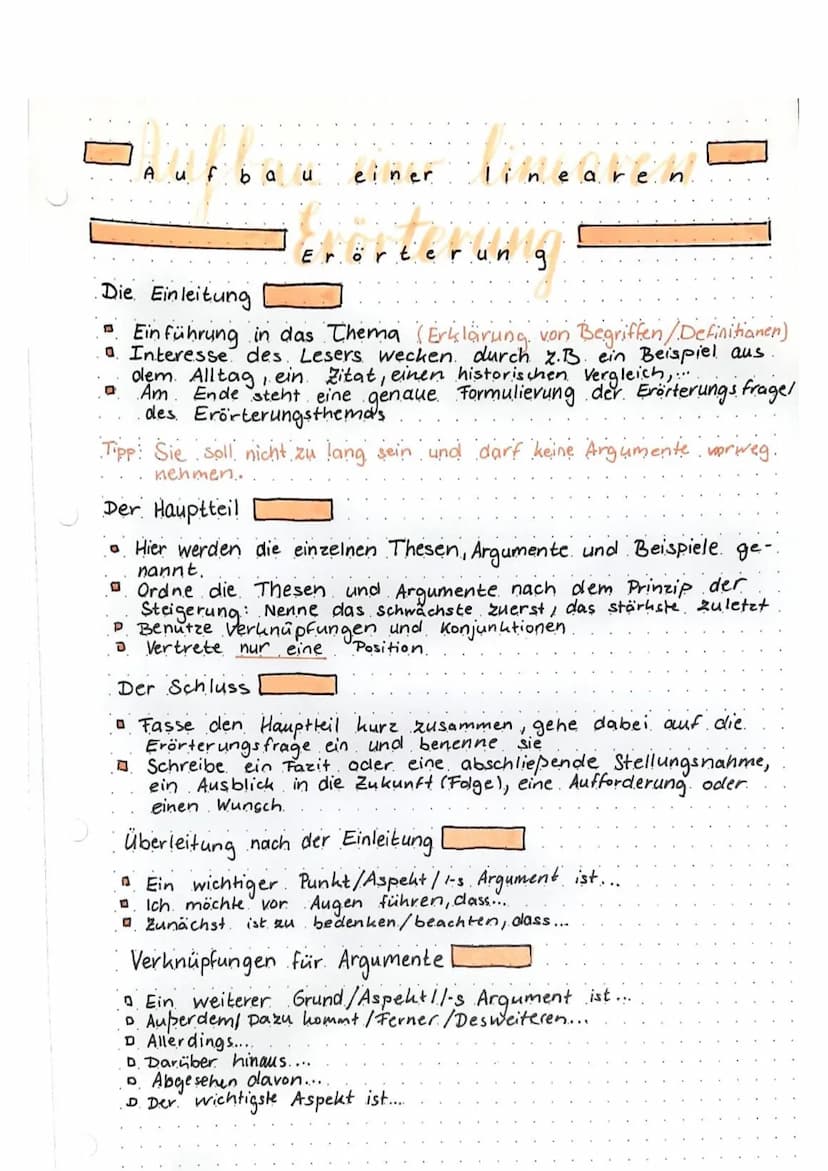 Aufbau einer linearen
Erörterung
Die Einleitung
Einführung in das Thema (Erklärung von Begriffen/Definitionen)
Interesse des Lesers wecken durch z.B. ein Beispiel aus
dem Alltag, ein Zitat, einen historischen Vergleich,...
Am Ende steht eine genaue Formulierung der Erörterungsfrage/
des Erörterungsthemas
Tipp: Sie soll nicht zu lang sein und darf keine Argumente vorweg
nehmen.
Der Hauptteil
Hier werden die einzelnen Thesen, Argumente und Beispiele ge-
nannt.
Ordne die Thesen und Argumente nach dem Prinzip der
Steigerung: Nenne das schwächste zuerst, das stärkste zuletzt
Benutze Verknüpfungen und Konjunktionen
Vertrete nur eine Position
Der Schluss
Fasse den Hauptteil kurz zusammen, gehe dabei auf die
Erörterungsfrage ein und benenne sie
Schreibe ein Fazit oder eine abschließende Stellungsnahme,
ein Ausblick in die Zukunft (Folge), eine Aufforderung oder
einen Wunsch
Überleitung nach der Einleitung
Ein wichtiger Punkt/Aspekt/-s Argument ist...
Ich möchte vor Augen führen, dass...
Zunächst ist zu bedenken/beachten, dass...
Verknüpfungen für Argumente
Ein weiterer Grund/Aspekt/-s Argument ist...
Außerdem/Dazu kommt/Ferner/Desweiteren...
Allerdings....
Darüber hinaus....
Abgesehen davon...
Der wichtigste Aspekt ist...